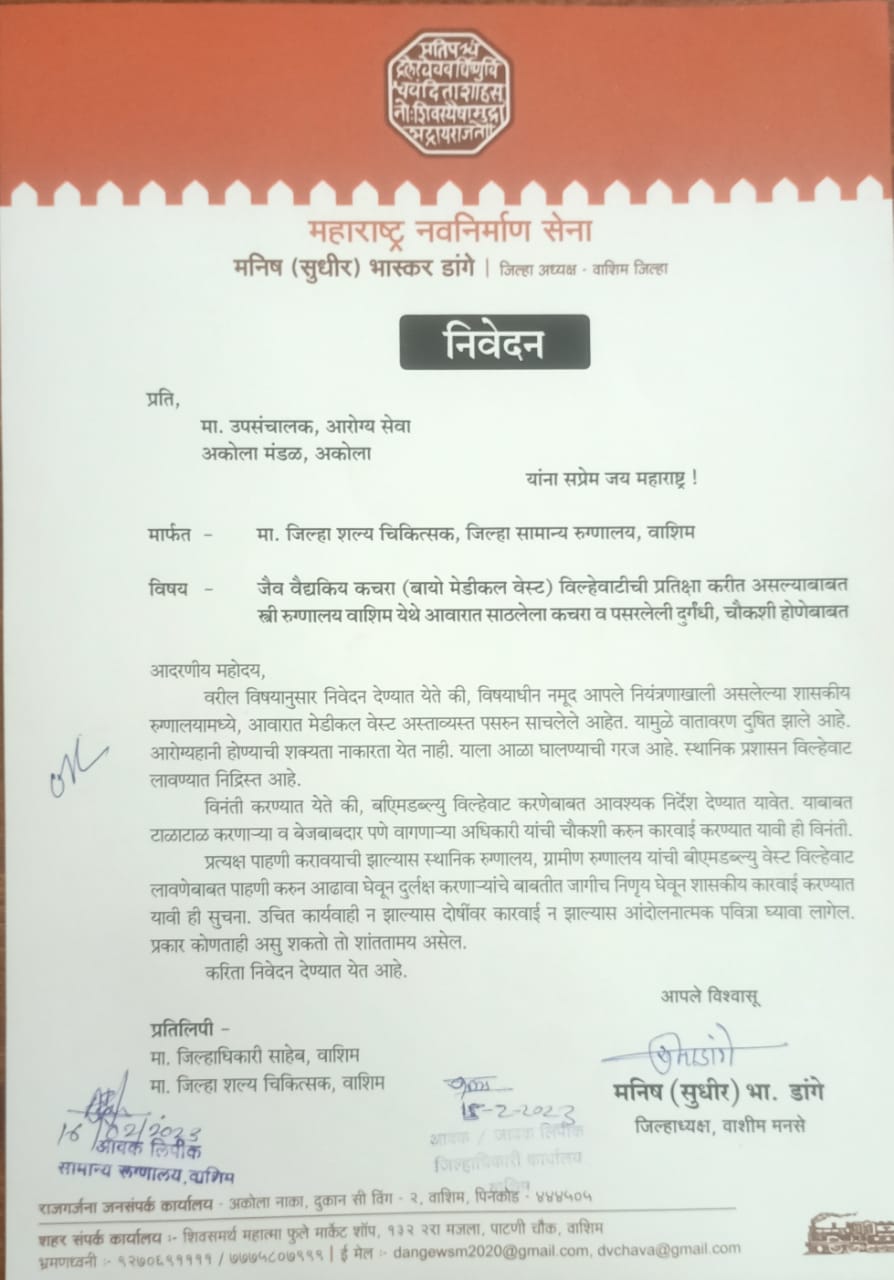 प्रतिपच्चं
द्रलेखेवववर्धिष्णुर्वि
श्ववंदिताशाहसू
नोःशिवस्यैषामुद्रा
भद्रायराजते
महाराष्ट्र नवनिर्माण सेना
मनिष (सुधीर) भास्कर डांगे | जिल्हा अध्यक्ष - वाशिम जिल्हा
निवेदन
प्रति,
मा. उपसंचालक, आरोग्य सेवा
अकोला मंडळ, अकोला
यांना सप्रेम जय महाराष्ट्र !
मार्फत - मा. जिल्हा शल्य चिकित्सक, जिल्हा सामान्य रुग्णालय, वाशिम
विषय - जैव वैद्यकिय कचरा (बायो मेडीकल वेस्ट) विल्हेवाटीची प्रतिक्षा करीत असल्याबाबत
स्त्री रुग्णालय वाशिम येथे आवारात साठलेला कचरा व पसरलेली दुर्गंधी, चौकशी होणेबाबत
आदरणीय महोदय,
वरील विषयानुसार निवेदन देण्यात येते की, विषयाधीन नमूद आपले नियंत्रणाखाली असलेल्या शासकीय
रुग्णालयामध्ये, आवारात मेडीकल वेस्ट अस्ताव्यस्त पसरुन साचलेले आहेत. यामुळे वातावरण दुषित झाले आहे.
आरोग्यहानी होण्याची शक्यता नाकारता येत नाही. याला आळा घालण्याची गरज आहे. स्थानिक प्रशासन विल्हेवाट
लावण्यात निद्रिस्त आहे.
विनंती करण्यात येते की, बएिमडब्ल्यु विल्हेवाट करणेबाबत आवश्यक निर्देश देण्यात यावेत. याबाबत
टाळाटाळ करणाऱ्या व बेजबाबदार पणे वागणाऱ्या अधिकारी यांची चौकशी करुन कारवाई करण्यात यावी ही विनंती.
प्रत्यक्ष पाहणी करावयाची झाल्यास स्थानिक रुग्णालय, ग्रामीण रुग्णालय यांची बीएमडब्ल्यु वेस्ट विल्हेवाट
लावणेबाबत पाहणी करुन आढावा घेवून दुर्लक्ष करणाऱ्यांचे बाबतीत जागीच निणृय घेवून शासकीय कारवाई करण्यात
यावी ही सुचना. उचित कार्यवाही न झाल्यास दोषींवर कारवाई न झाल्यास आंदोलनात्मक पवित्रा घ्यावा लागेल.
प्रकार कोणताही असु शकतो तो शांततामय असेल.
करिता निवेदन देण्यात येत आहे.
आपले विश्वासू
प्रतिलिपी -
मा. जिल्हाधिकारी साहेब, वाशिम
मा. जिल्हा शल्य चिकित्सक, वाशिम
मनिष (सुधीर) भा. डांगे
जिल्हाध्यक्ष, वाशीम मनसे
16/02/2023
आवक लिपीक
सामान्य रुग्णालय, वाशिम
15-2-2023
आवक / जावक लिपीक
जिल्हाधिकारी कार्यालय
वाशिम
राजगर्जना जनसंपर्क कार्यालय - अकोला नाका, दुकान सी विंग - २, वाशिम, पिनकोड - ४४४५०५
शहर संपर्क कार्यालय :- शिवसमर्थ महात्मा फुले मार्केट शॉप, १३२ २रा मजला, पाटणी चौक, वाशिम
भ्रमणध्वनी :- ९२७०६९११११ / ७७७५८०७९९९ | ई मेल :- dangewsm2020@gmail.com, dvchava@gmail.com